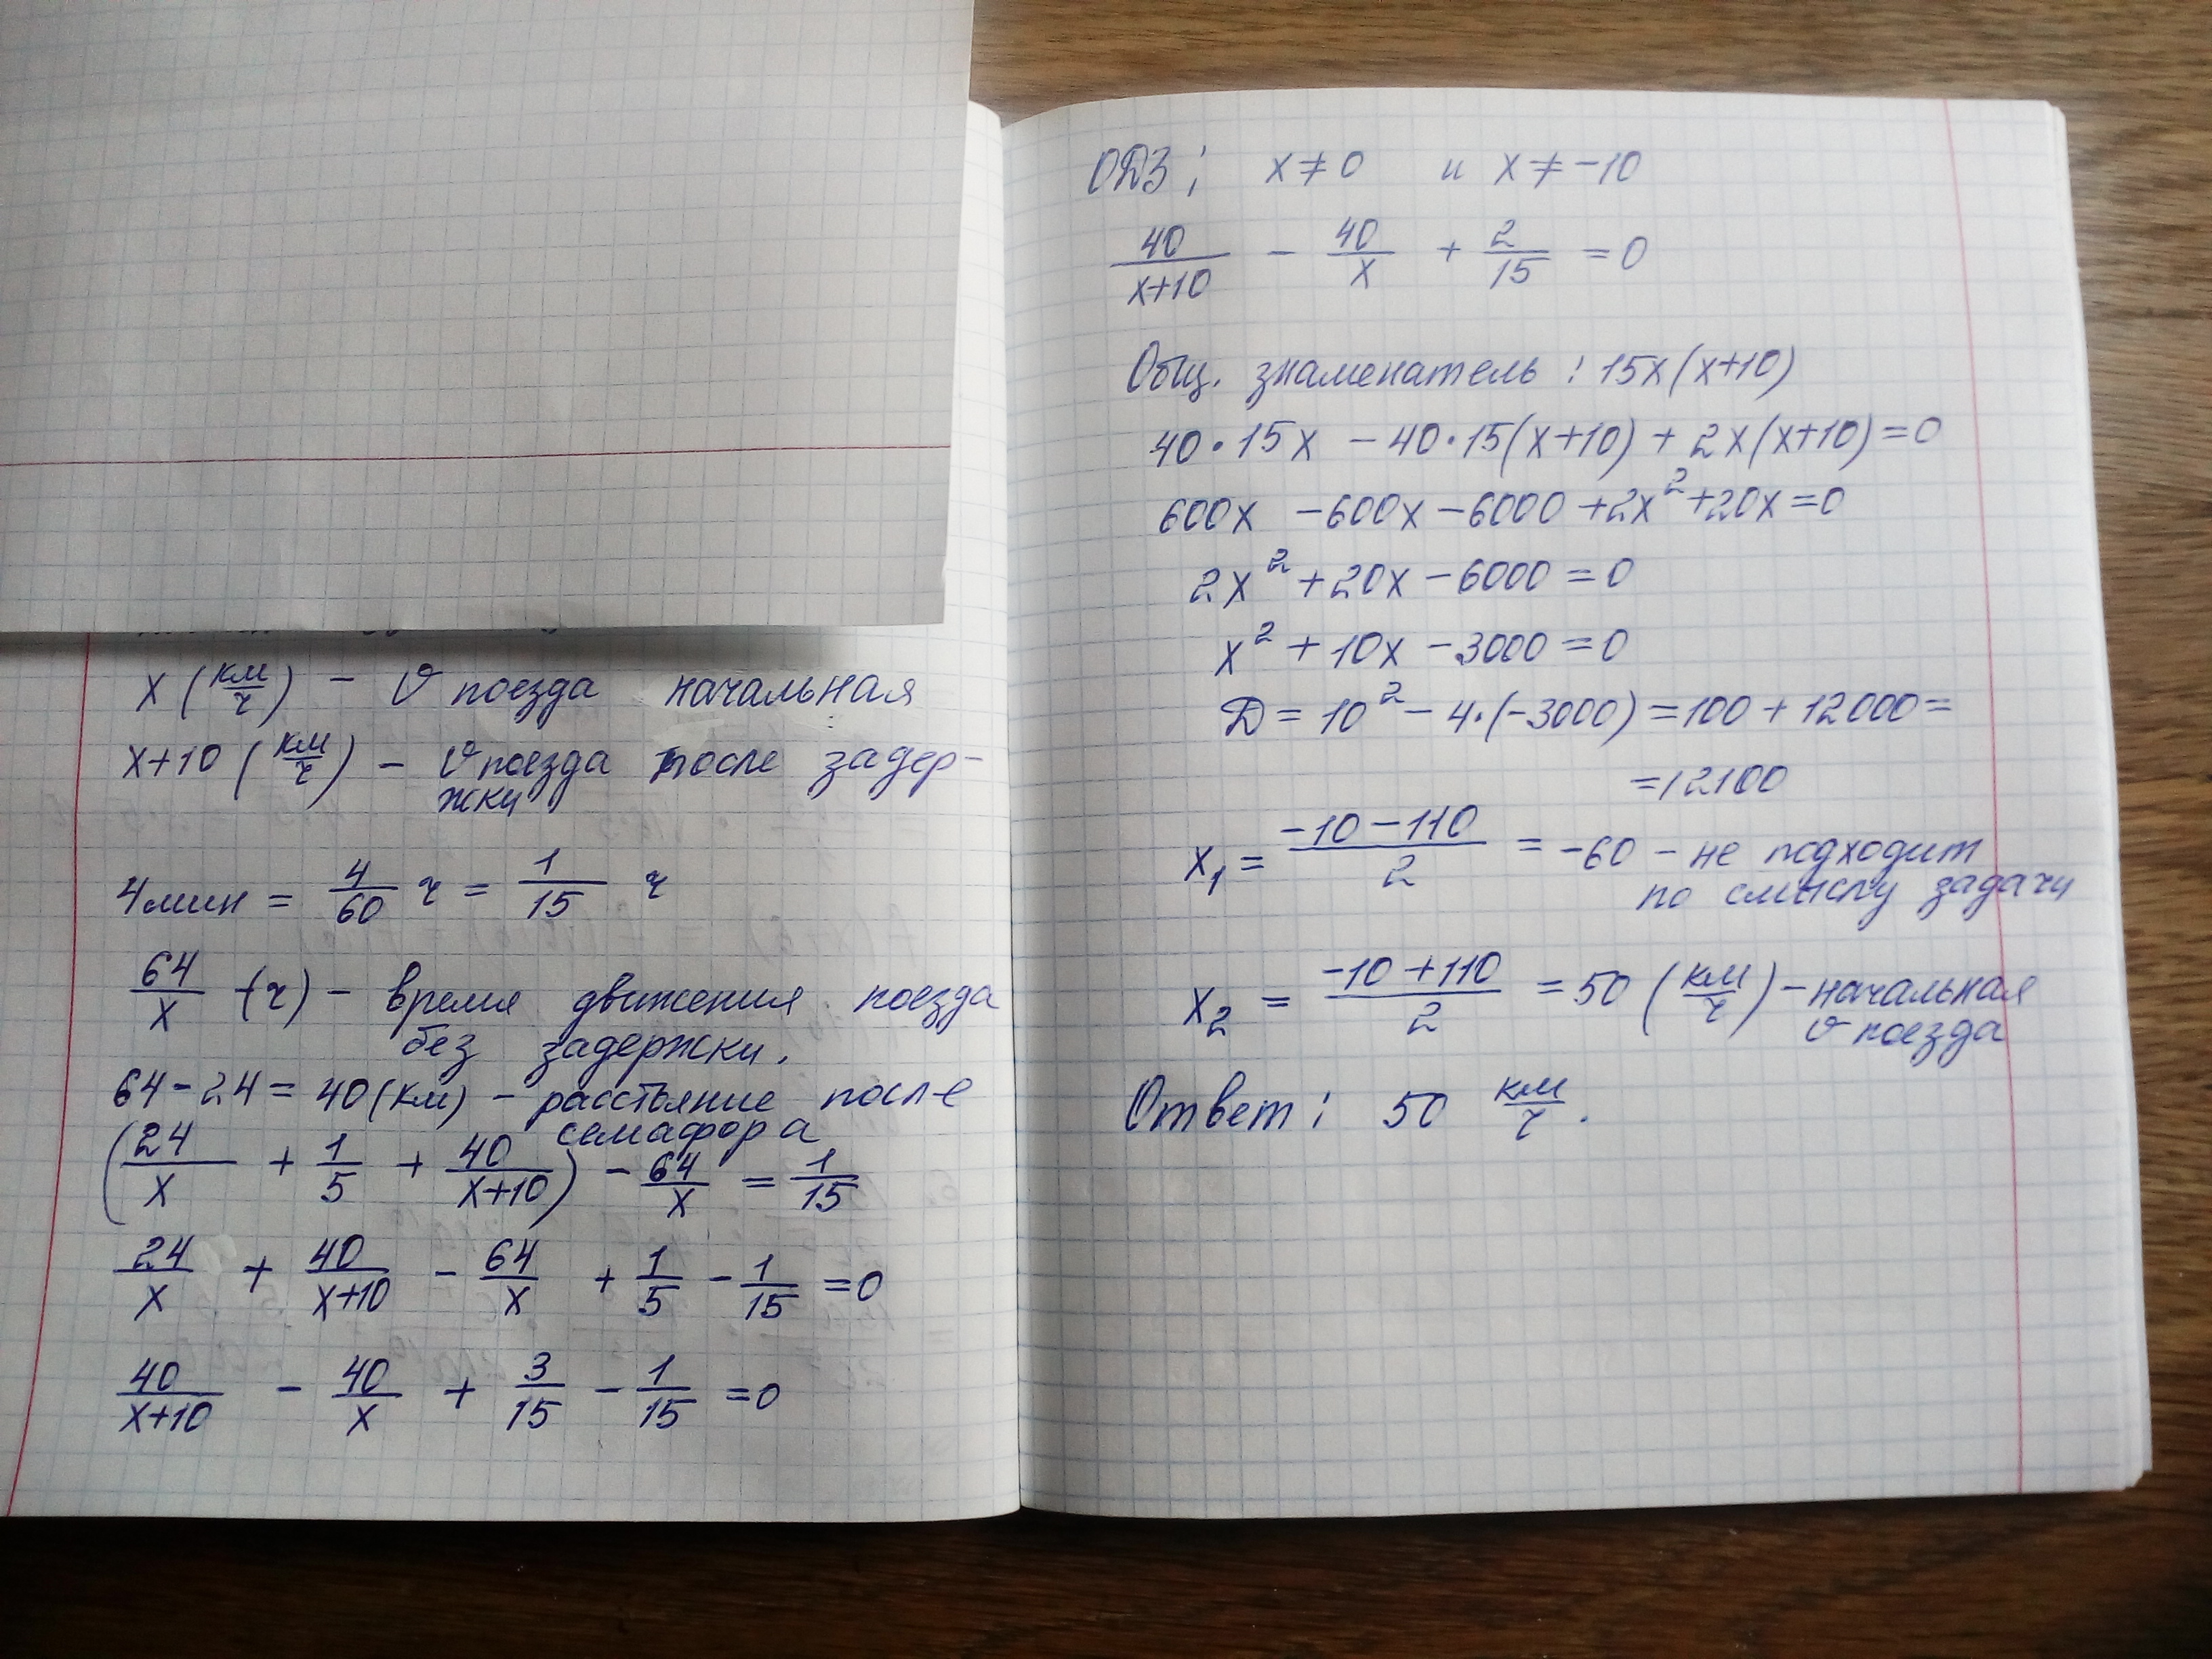 x (км/ч) – v поезда начальная
x+10 (км/ч) – v поезда после задер-
жки
4 мин = 4/60 ч = 1/15 ч
64/x (ч) – время движения поезда
без задержки.
64 - 24 = 40 (км) – расстояние после
семафора
(24/x + 1/5 + 40/(x+10)) - 64/x = 1/15
24/x + 40/(x+10) - 64/x + 1/5 - 1/15 = 0
40/(x+10) - 40/x + 3/15 - 1/15 = 0
ОДЗ: x ≠ 0 и x ≠ -10
40/(x+10) - 40/x + 2/15 = 0
Общ. знаменатель: 15x(x+10)
40·15x - 40·15(x+10) + 2x(x+10) = 0
600x - 600x - 6000 + 2x² + 20x = 0
2x² + 20x - 6000 = 0
x² + 10x - 3000 = 0
D = 10² - 4·(-3000) = 100 + 12000 =
= 12100
x₁ = (-10 - 110)/2 = -60 – не подходит
по смыслу задачи
x₂ = (-10 + 110)/2 = 50 (км/ч) – начальная
v поезда
Ответ: 50 км/ч.